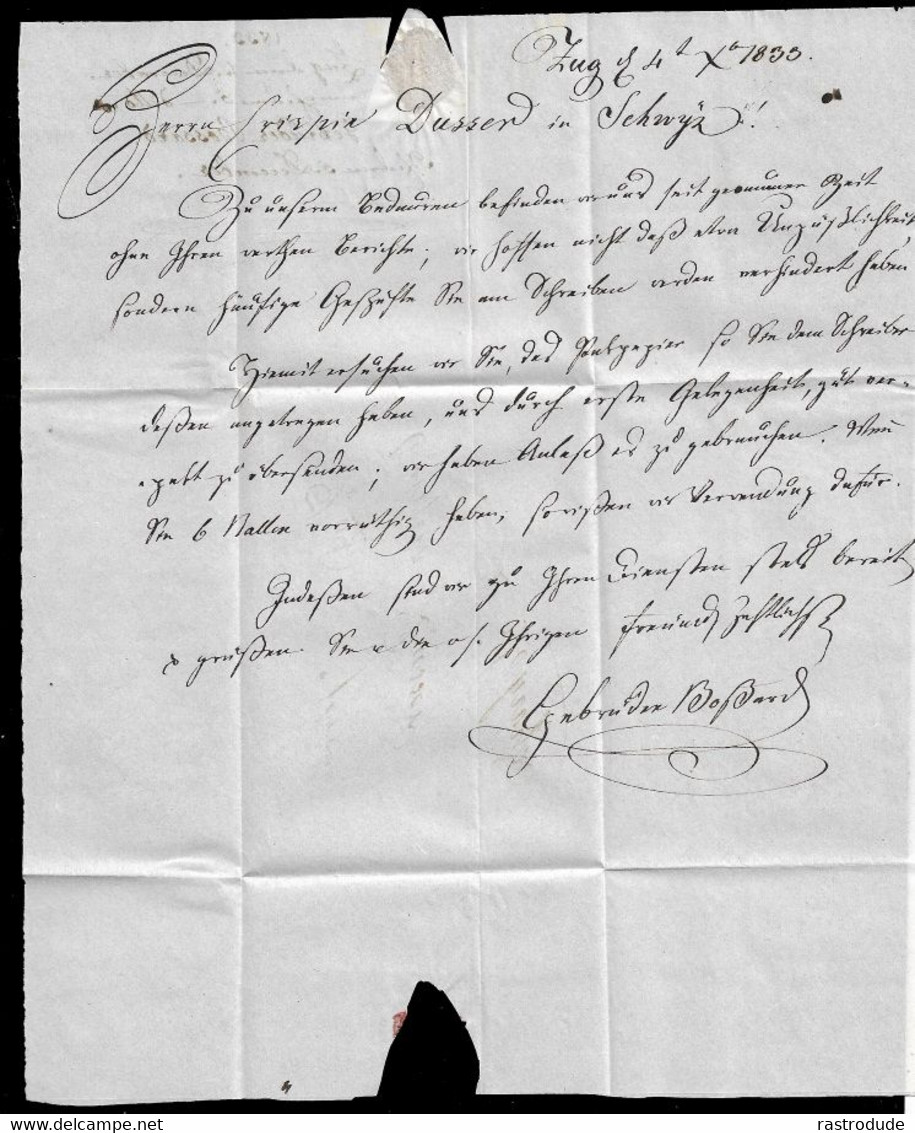 Zug d 4t Xbr 1833.
Herrn Crispin Dusser in Schwÿz!
Zu unserm Bedauren befinden wir uns seit geraumer Zeit
ohne Ihren werthen Berichte; wir hoffen nicht daß etwa Unpäßlichkeit
sondern häufige Geschäfte Sie am Schreiben werden verhindert haben
Hiemit ersuchen wir Sie, das Packpapier so Sie dem Schreiber
deßen angetragen haben, uns durch erste Gelegenheit, gut ver-
packt zu übersenden; wir haben Anlaß es zu gebrauchen. Wenn
Sie 6 Ballen vorräthig haben, so wißen wir Verwendung dafür.
Indeßen sind wir zu Ihren Diensten stets bereit
& grüßen Sie die Ihrigen
Gebrüder Boßard
delcampe.net
rastrodude